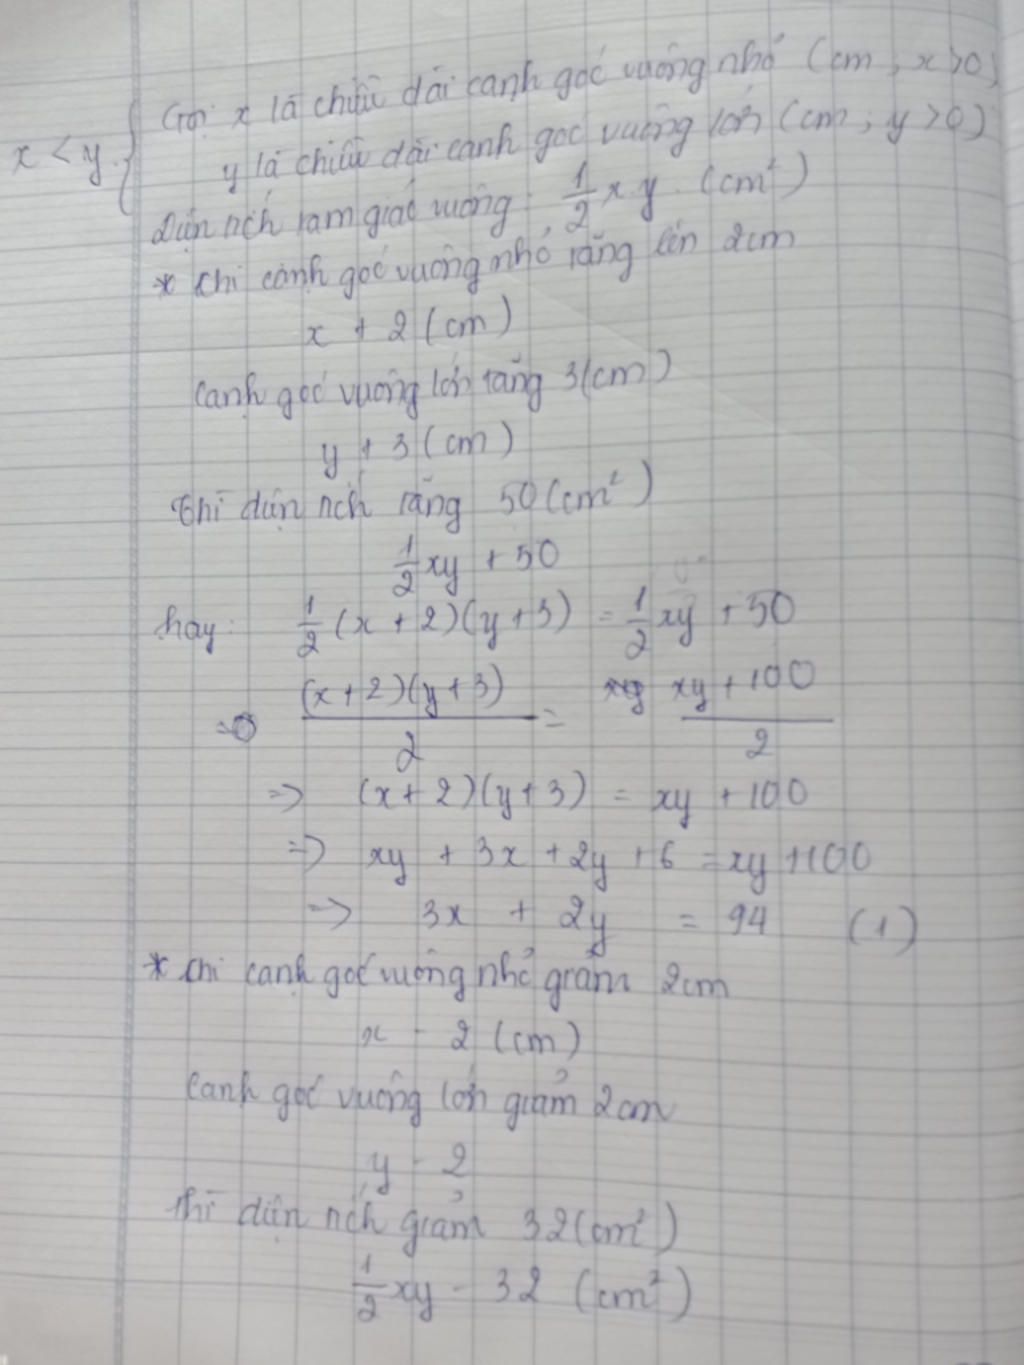 x < y { Gọi x là chiều dài cạnh góc vuông nhỏ (cm, x>0)
y là chiều dài cạnh góc vuông lớn (cm, y>0)
Diện tích tam giác vuông: 1/2 x.y (cm²)
* Khi cạnh góc vuông nhỏ tăng lên 2cm
x + 2 (cm)
Cạnh góc vuông lớn tăng 3(cm)
y + 3 (cm)
Thì diện tích tăng 50(cm²)
1/2 xy + 50
hay: 1/2 (x+2)(y+3) = 1/2 xy + 50
=> (x+2)(y+3)/2 = xy + 100/2
=> (x+2)(y+3) = xy + 100
=> xy + 3x + 2y + 6 = xy + 100
=> 3x + 2y = 94 (1)
* Khi cạnh góc vuông nhỏ giảm 2cm
x - 2 (cm)
Cạnh góc vuông lớn giảm 2cm
y - 2
thì diện tích giảm 32(cm²)
1/2 xy - 32 (cm²)